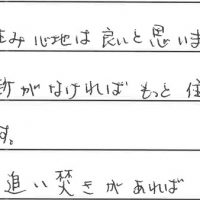 住み心地は良いと思いま
所がなければもっと住
す。
追い焚きがあれば